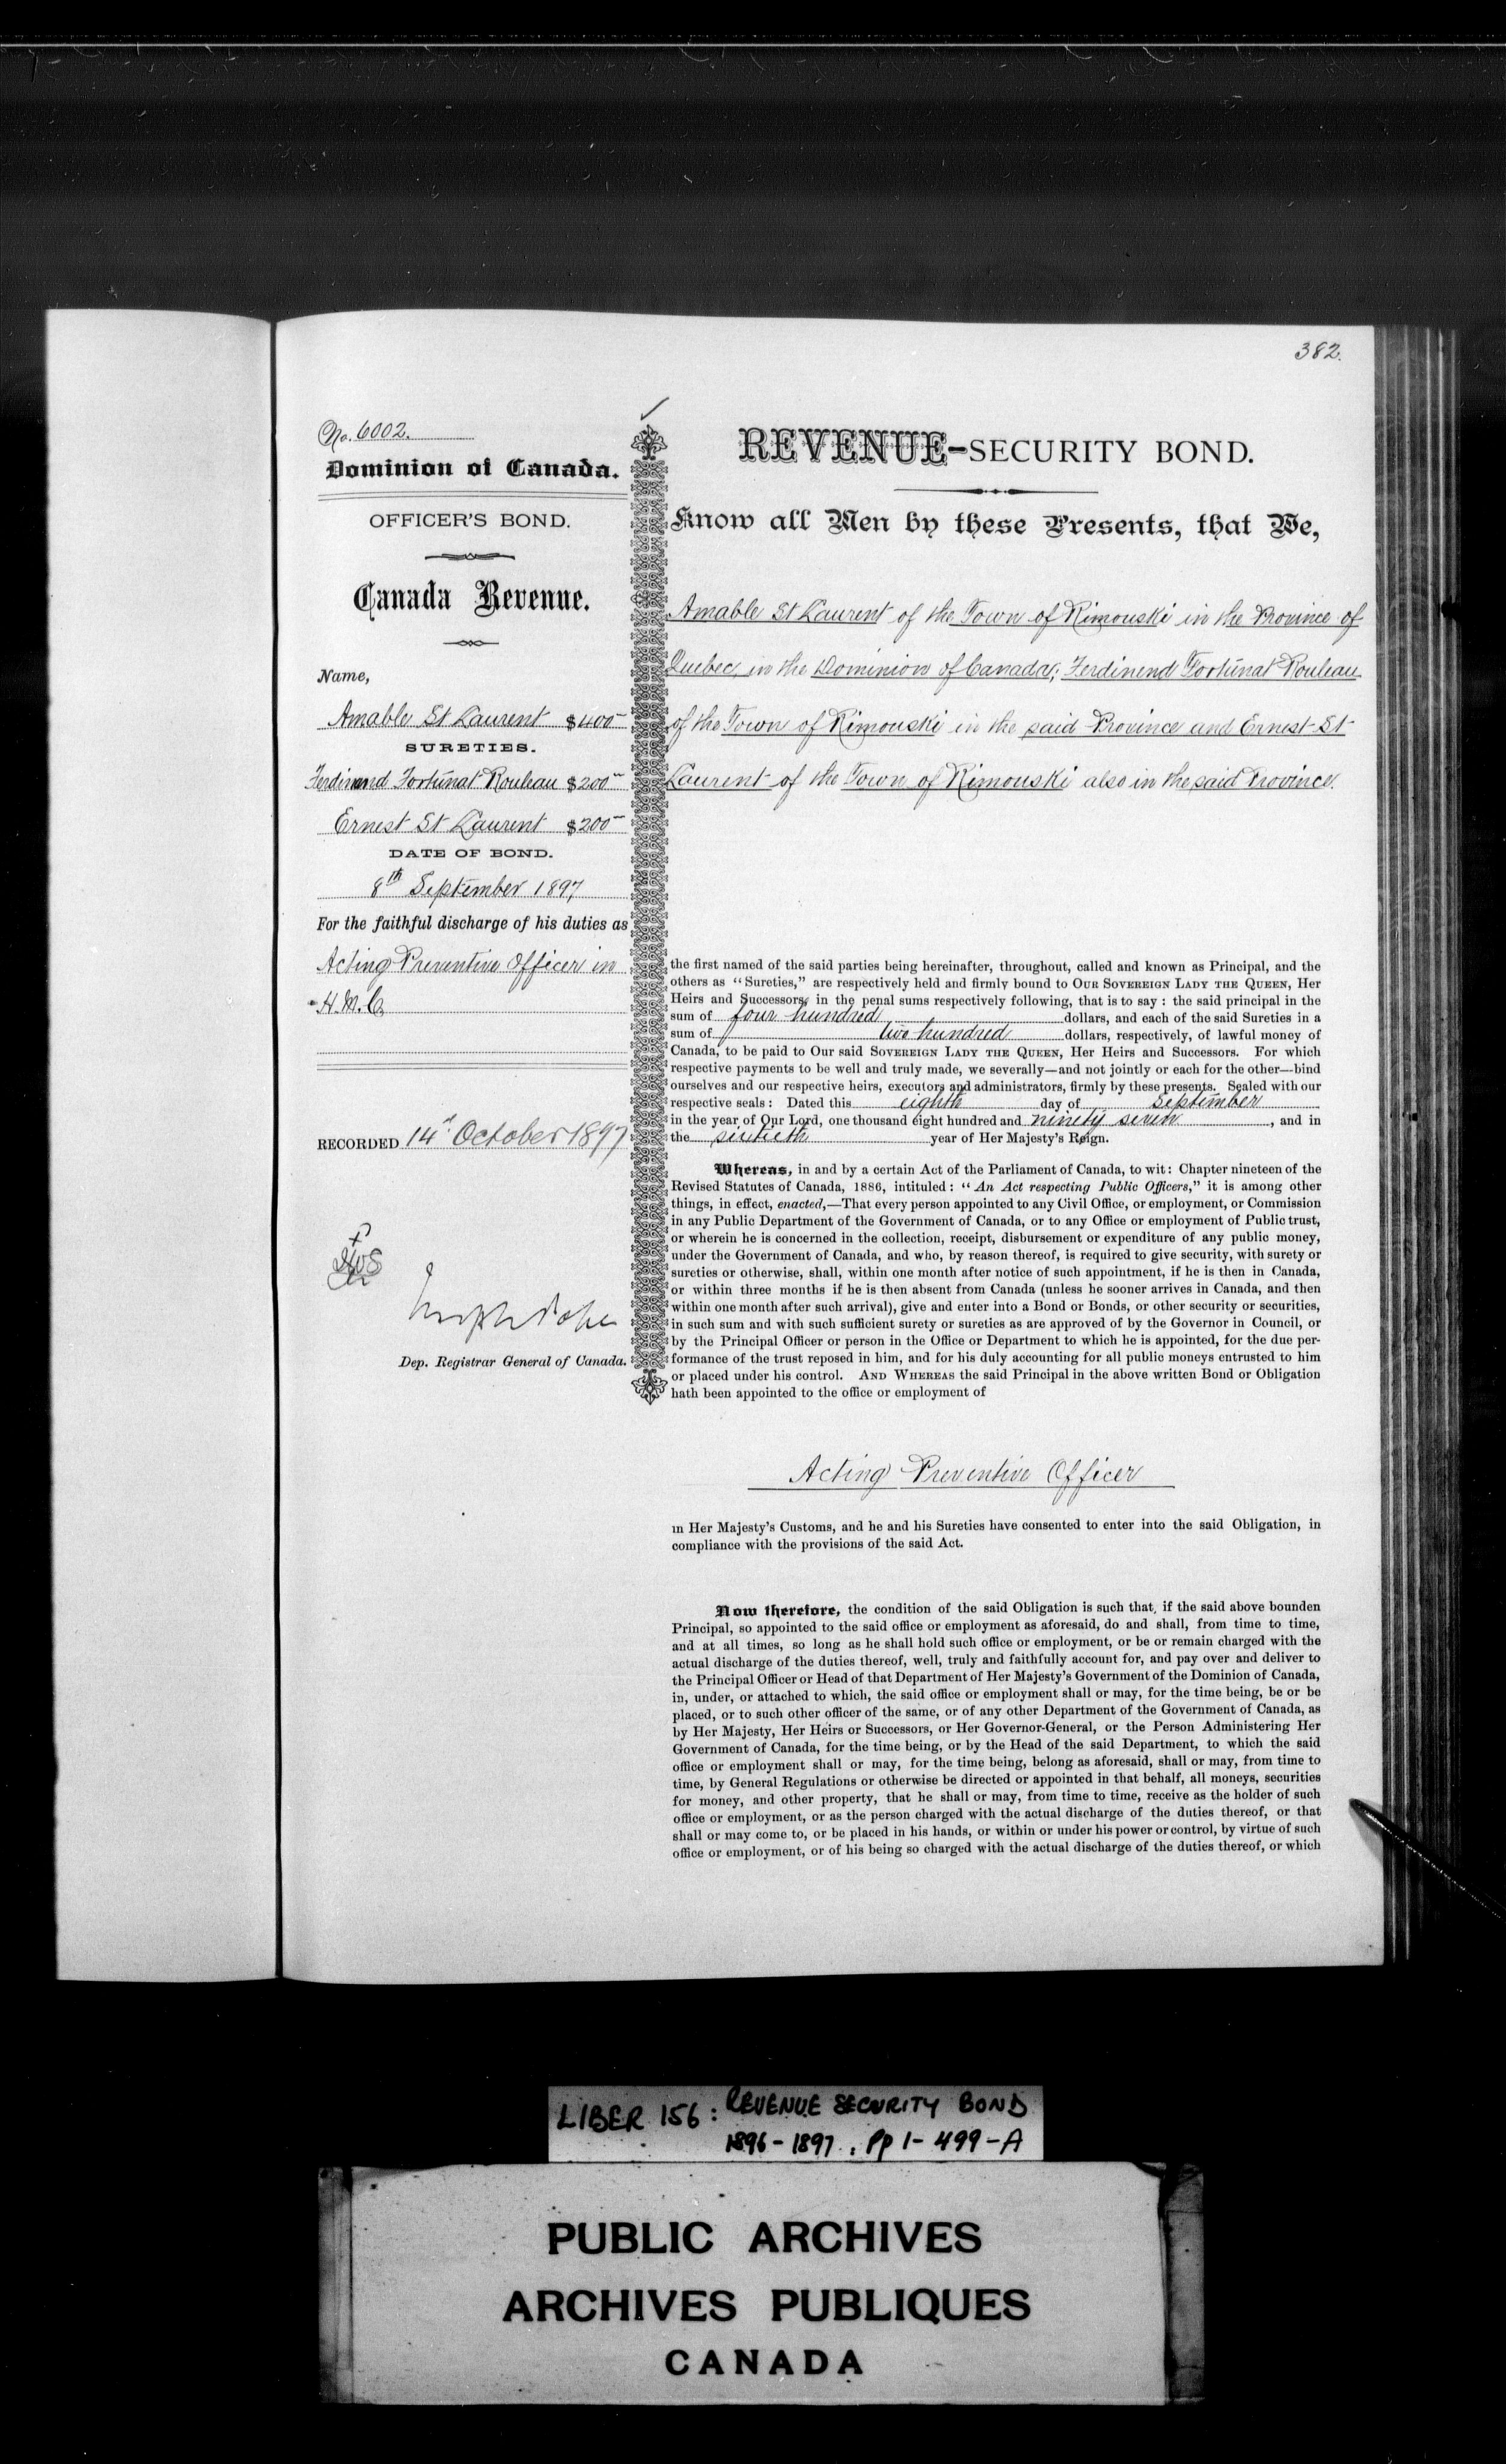 382.
No. 6002.
Dominion of Canada.
OFFICER'S BOND.
Canada Revenue.
Name,
Amable St Laurent $400
SURETIES.
Ferdinend Fortunat Rouleau $200
Ernest St Laurent $200
DATE OF BOND.
8th September 1897
For the faithful discharge of his duties as
Acting Preventive Officer in
H.M.C.
RECORDED 14th October 1897
Dep. Registrar General of Canada.
REVENUE-SECURITY BOND.
Know all Men by these Presents, that We,
Amable St Laurent of the Town of Rimouski in the Province of
Quebec, in the Dominion of Canada; Ferdinend Fortunat Rouleau
of the Town of Rimouski in the said Province and Ernest St
Laurent of the Town of Rimouski also in the said Province.
the first named of the said parties being hereinafter, throughout, called and known as Principal, and the
others as "Sureties," are respectively held and firmly bound to OUR SOVEREIGN LADY THE QUEEN, Her
Heirs and Successors, in the penal sums respectively following, that is to say : the said principal in the
sum of four hundred dollars, and each of the said Sureties in a
sum of two hundred dollars, respectively, of lawful money of
Canada, to be paid to Our said SOVEREIGN LADY THE QUEEN, Her Heirs and Successors. For which
respective payments to be well and truly made, we severally—and not jointly or each for the other—bind
ourselves and our respective heirs, executors and administrators, firmly by these presents. Sealed with our
respective seals : Dated this eighth day of September
in the year of Our Lord, one thousand eight hundred and ninety seven, and in
the sixtieth year of Her Majesty's Reign.
Whereas, in and by a certain Act of the Parliament of Canada, to wit : Chapter nineteen of the
Revised Statutes of Canada, 1886, intituled : "An Act respecting Public Officers," it is among other
things, in effect, enacted,—That every person appointed to any Civil Office, or employment, or Commission
in any Public Department of the Government of Canada, or to any Office or employment of Public trust,
or wherein he is concerned in the collection, receipt, disbursement or expenditure of any public money,
under the Government of Canada, and who, by reason thereof, is required to give security, with surety or
sureties or otherwise, shall, within one month after notice of such appointment, if he is then in Canada,
or within three months if he is then absent from Canada (unless he sooner arrives in Canada, and then
within one month after such arrival), give and enter into a Bond or Bonds, or other security or securities,
in such sum and with such sufficient surety or sureties as are approved of by the Governor in Council, or
by the Principal Officer or person in the Office or Department to which he is appointed, for the due per-
formance of the trust reposed in him, and for his duly accounting for all public moneys entrusted to him
or placed under his control. AND WHEREAS the said Principal in the above written Bond or Obligation
hath been appointed to the office or employment of
Acting Preventive Officer
in Her Majesty's Customs, and he and his Sureties have consented to enter into the said Obligation, in
compliance with the provisions of the said Act.
Now therefore, the condition of the said Obligation is such that, if the said above bounden
Principal, so appointed to the said office or employment as aforesaid, do and shall, from time to time,
and at all times, so long as he shall hold such office or employment, or be or remain charged with the
actual discharge of the duties thereof, well, truly and faithfully account for, and pay over and deliver to
the Principal Officer or Head of that Department of Her Majesty's Government of the Dominion of Canada,
in, under, or attached to which, the said office or employment shall or may, for the time being, be or be
placed, or to such other officer of the same, or of any other Department of the Government of Canada, as
by Her Majesty, Her Heirs or Successors, or Her Governor-General, or the Person Administering Her
Government of Canada, for the time being, or by the Head of the said Department, to which the said
office or employment shall or may, for the time being, belong as aforesaid, shall or may, from time to
time, by General Regulations or otherwise be directed or appointed in that behalf, all moneys, securities
for money, and other property, that he shall or may, from time to time, receive as the holder of such
office or employment, or as the person charged with the actual discharge of the duties thereof, or that
shall or may come to, or be placed in his hands, or within or under his power or control, by virtue of such
office or employment, or of his being so charged with the actual discharge of the duties thereof, or which
LIBER 156: REVENUE SECURITY BOND
1896-1897. Pp 1-499-A
PUBLIC ARCHIVES
ARCHIVES PUBLIQUES
CANADA